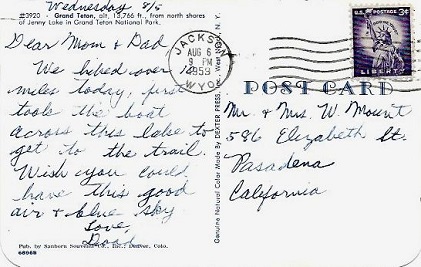 Wednesday 8/5
#3920 - Grand Teton, alt. 13,766 ft., from north shores
of Jenny Lake in Grand Teton National Park.
Dear Mom & Dad
We hiked over
miles today, first
took the boat
across this lake to
get to the trail.
Wish you could
have this good
air & blue sky
Love,
Pub. by Sanborn Souvenir Co., Inc., Denver, Colo.
Genuine Natural Color Made By DEXTER PRESS, INC., West Nyack, N. Y.
JACKSON
AUG 6
9 PM
1959
WYO.
U.S. POSTAGE 3¢
LIBERTY
POST CARD
Mr. & Mrs. W. Mount
Elizabeth St.
Pasadena
California